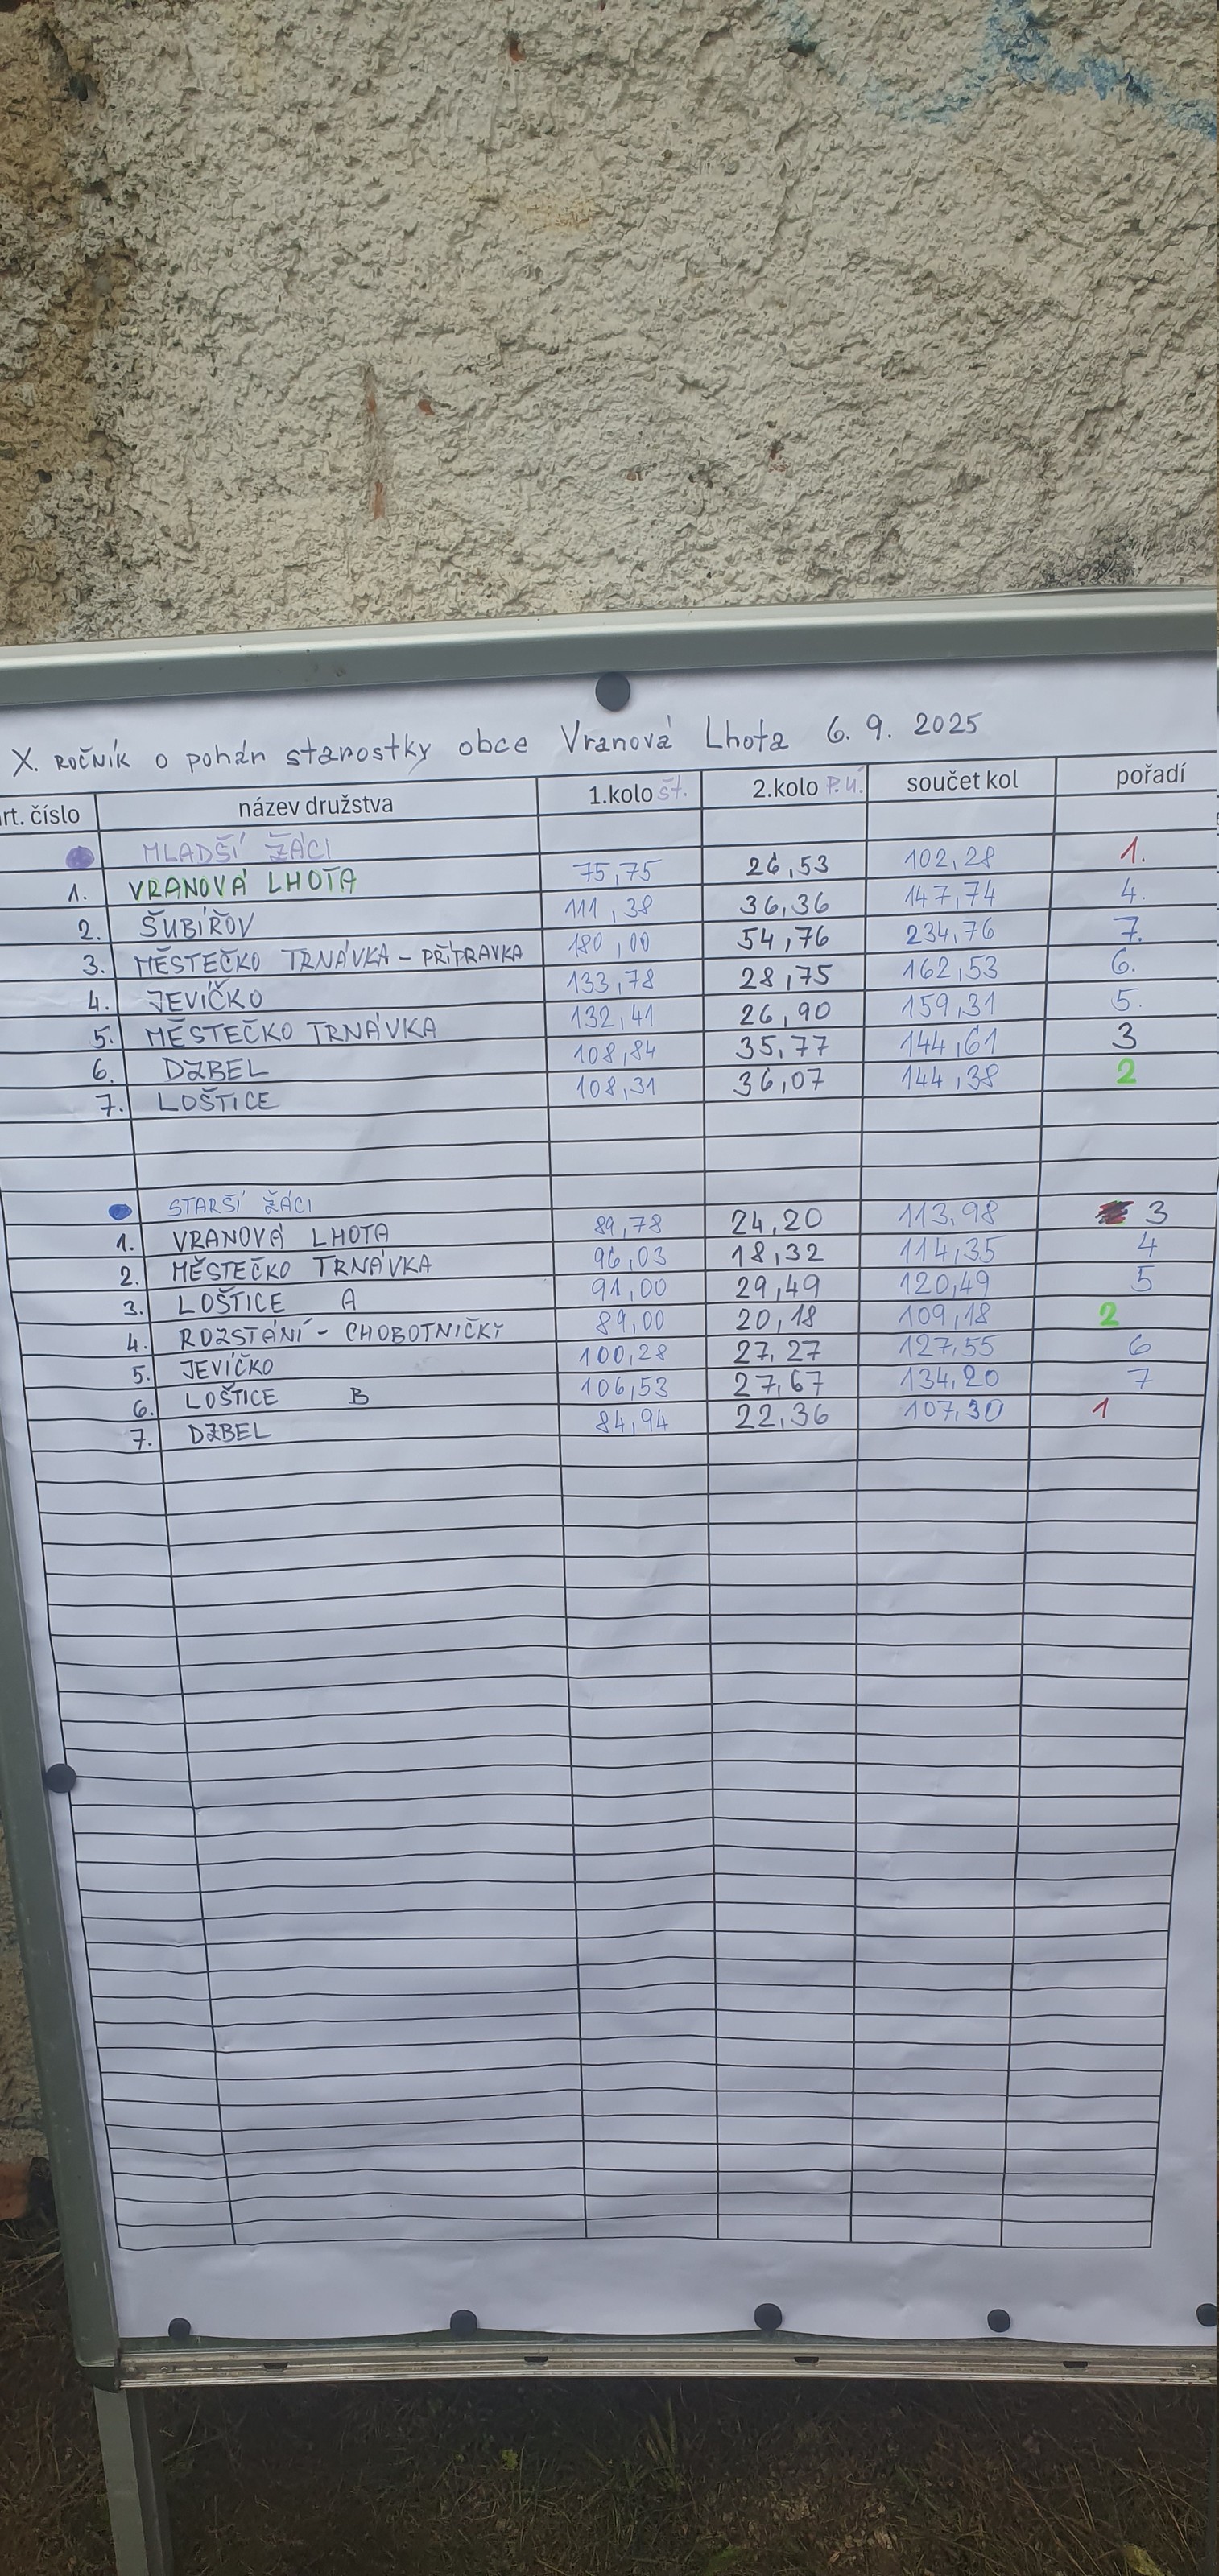 X. ROČNÍK o pohár starostky obce Vranová Lhota 6. 9. 2025
rt. číslo název družstva 1.kolo št. 2.kolo P.Ú. součet kol pořadí
MLADŠÍ ŽÁCI
1. VRANOVÁ LHOTA 75,75 26,53 102,28 1.
2. ŠUBÍŘOV 111,38 36,36 147,74 4.
3. MĚSTEČKO TRNÁVKA - PŘÍPRAVKA 180,00 54,76 234,76 7.
4. JEVÍČKO 133,78 28,75 162,53 6.
5. MĚSTEČKO TRNÁVKA 132,41 26,90 159,31 5.
6. DZBEL 108,84 35,77 144,61 3
7. LOŠTICE 108,31 36,07 144,38 2
STARŠÍ ŽÁCI
1. VRANOVÁ LHOTA 89,78 24,20 113,98 3
2. MĚSTEČKO TRNÁVKA 96,03 18,32 114,35 4
3. LOŠTICE A 91,00 29,49 120,49 5
4. ROZSTÁNÍ - CHOBOTNIČKY 89,00 20,18 109,18 2
5. JEVÍČKO 100,28 27,27 127,55 6
6. LOŠTICE B 106,53 27,67 134,20 7
7. DZBEL 84,94 22,36 107,30 1